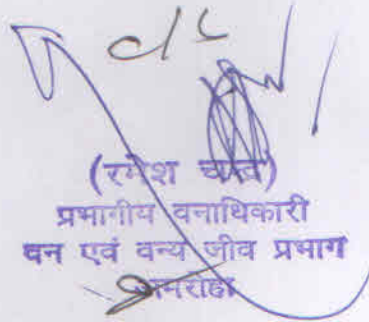 c/c
(रमेश चन्द्र)
प्रभागीय वनाधिकारी
वन एवं वन्य जीव प्रभाग
अमरोहा